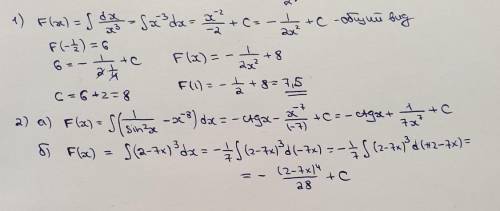 1) F(x) = ∫ dx/x³ = ∫ x⁻³ dx = x⁻²/-2 + C = - 1/2x² + C - общий вид
F(-1/2) = 6
6 = - 1/(2·1/4) + C F(x) = - 1/2x² + 8
C = 6 + 2 = 8 F(1) = - 1/2 + 8 = 7,5
2) а) F(x) = ∫ (1/sin²x - x⁻⁸) dx = - ctgx - x⁻⁷/(-7) + C = - ctgx + 1/7x⁷ + C
б) F(x) = ∫ (2-7x)³ dx = - 1/7 ∫ (2-7x)³ d(-7x) = - 1/7 ∫ (2-7x)³ d(+2-7x) =
= - (2-7x)⁴/28 + C